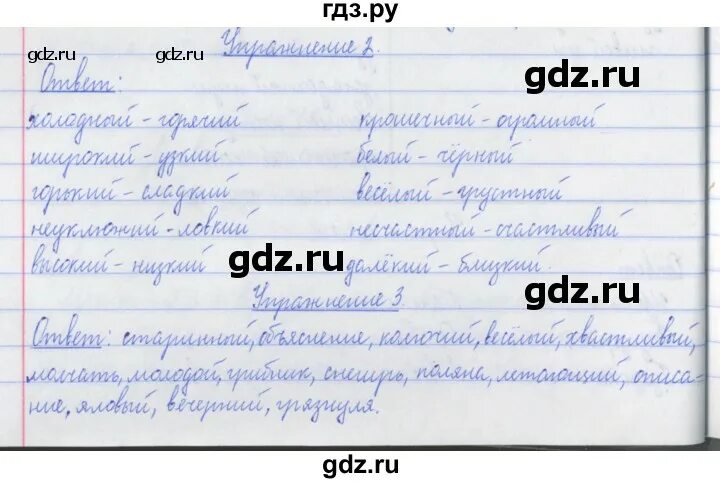 гдз.ру
gdz.ru
gdz.ru
Упражнение 2.
Ответ:
gdz.ru
холодный – горячий крошечный – огромный
широкий – узкий белый – чёрный
горький – сладкий весёлый – грустный
неуклюжий – ловкий несчастный – счастливый
высокий – низкий далёкий – близкий.
gdz.ru
gdz.ru
Упражнение 3.
Ответ: старинный, объяснение, колючий, весёлый, хвастливый,
молчать, молодой, грибник, снегирь, поляна, летающий, описа-
ние, яловый, вечерний, грязнуля.
gdz.ru